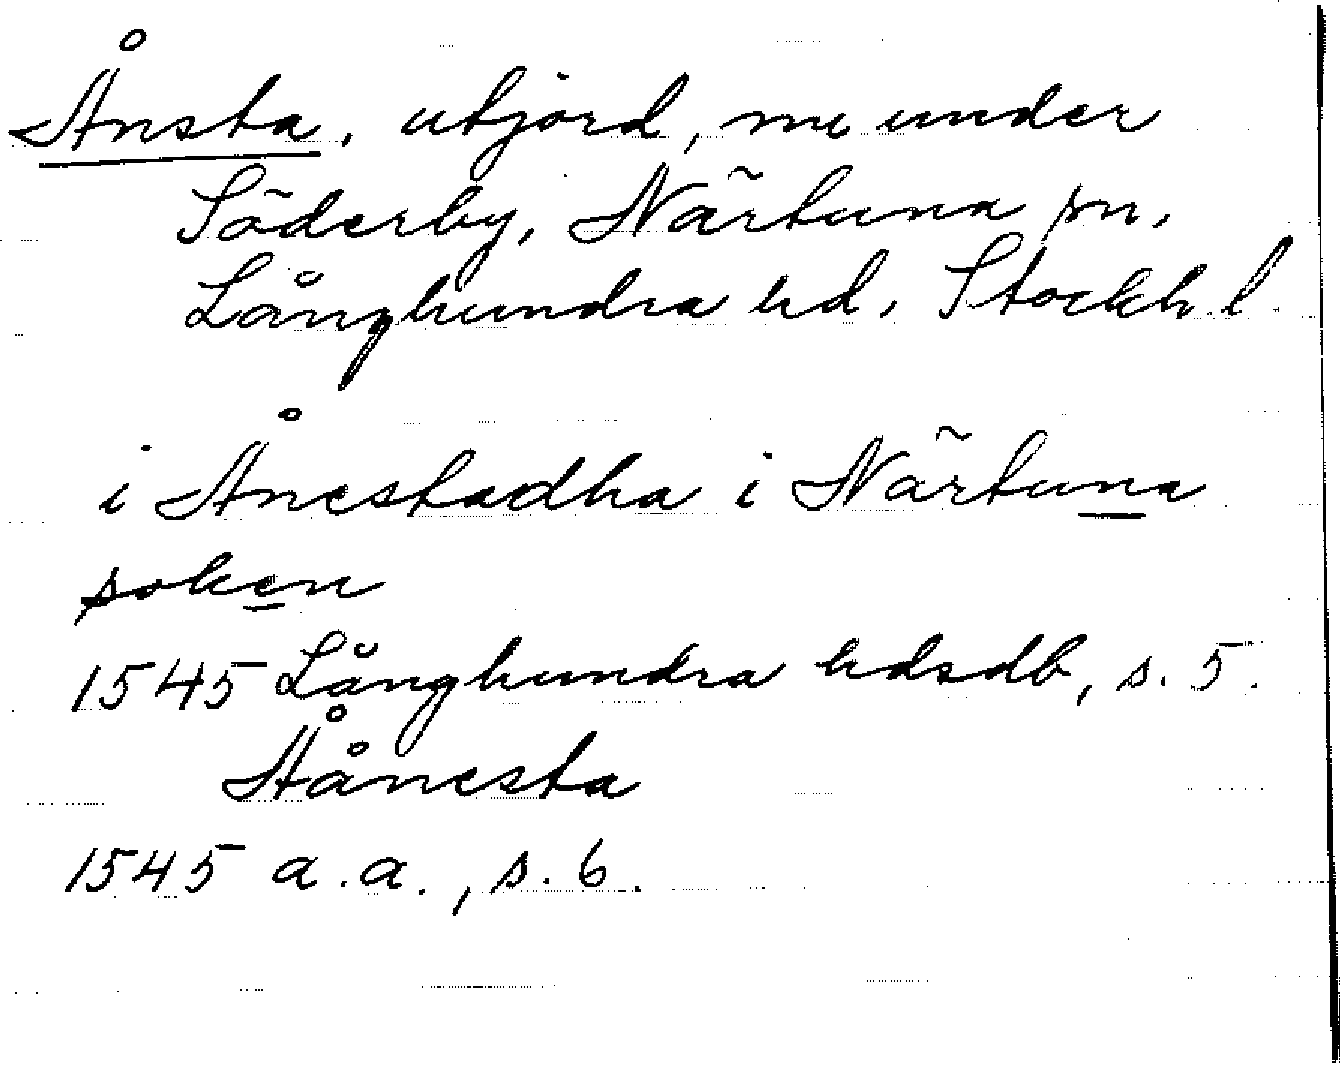 Ånsta, utjord, nu under
Söderby, Närtuna sn,
Långhundra hd, Stockh. l.
i Ånestadha i Närtuna
soken
1545 Långhundra hdsdb, s. 5.
Åånesta
1545 a.a., s. 6.